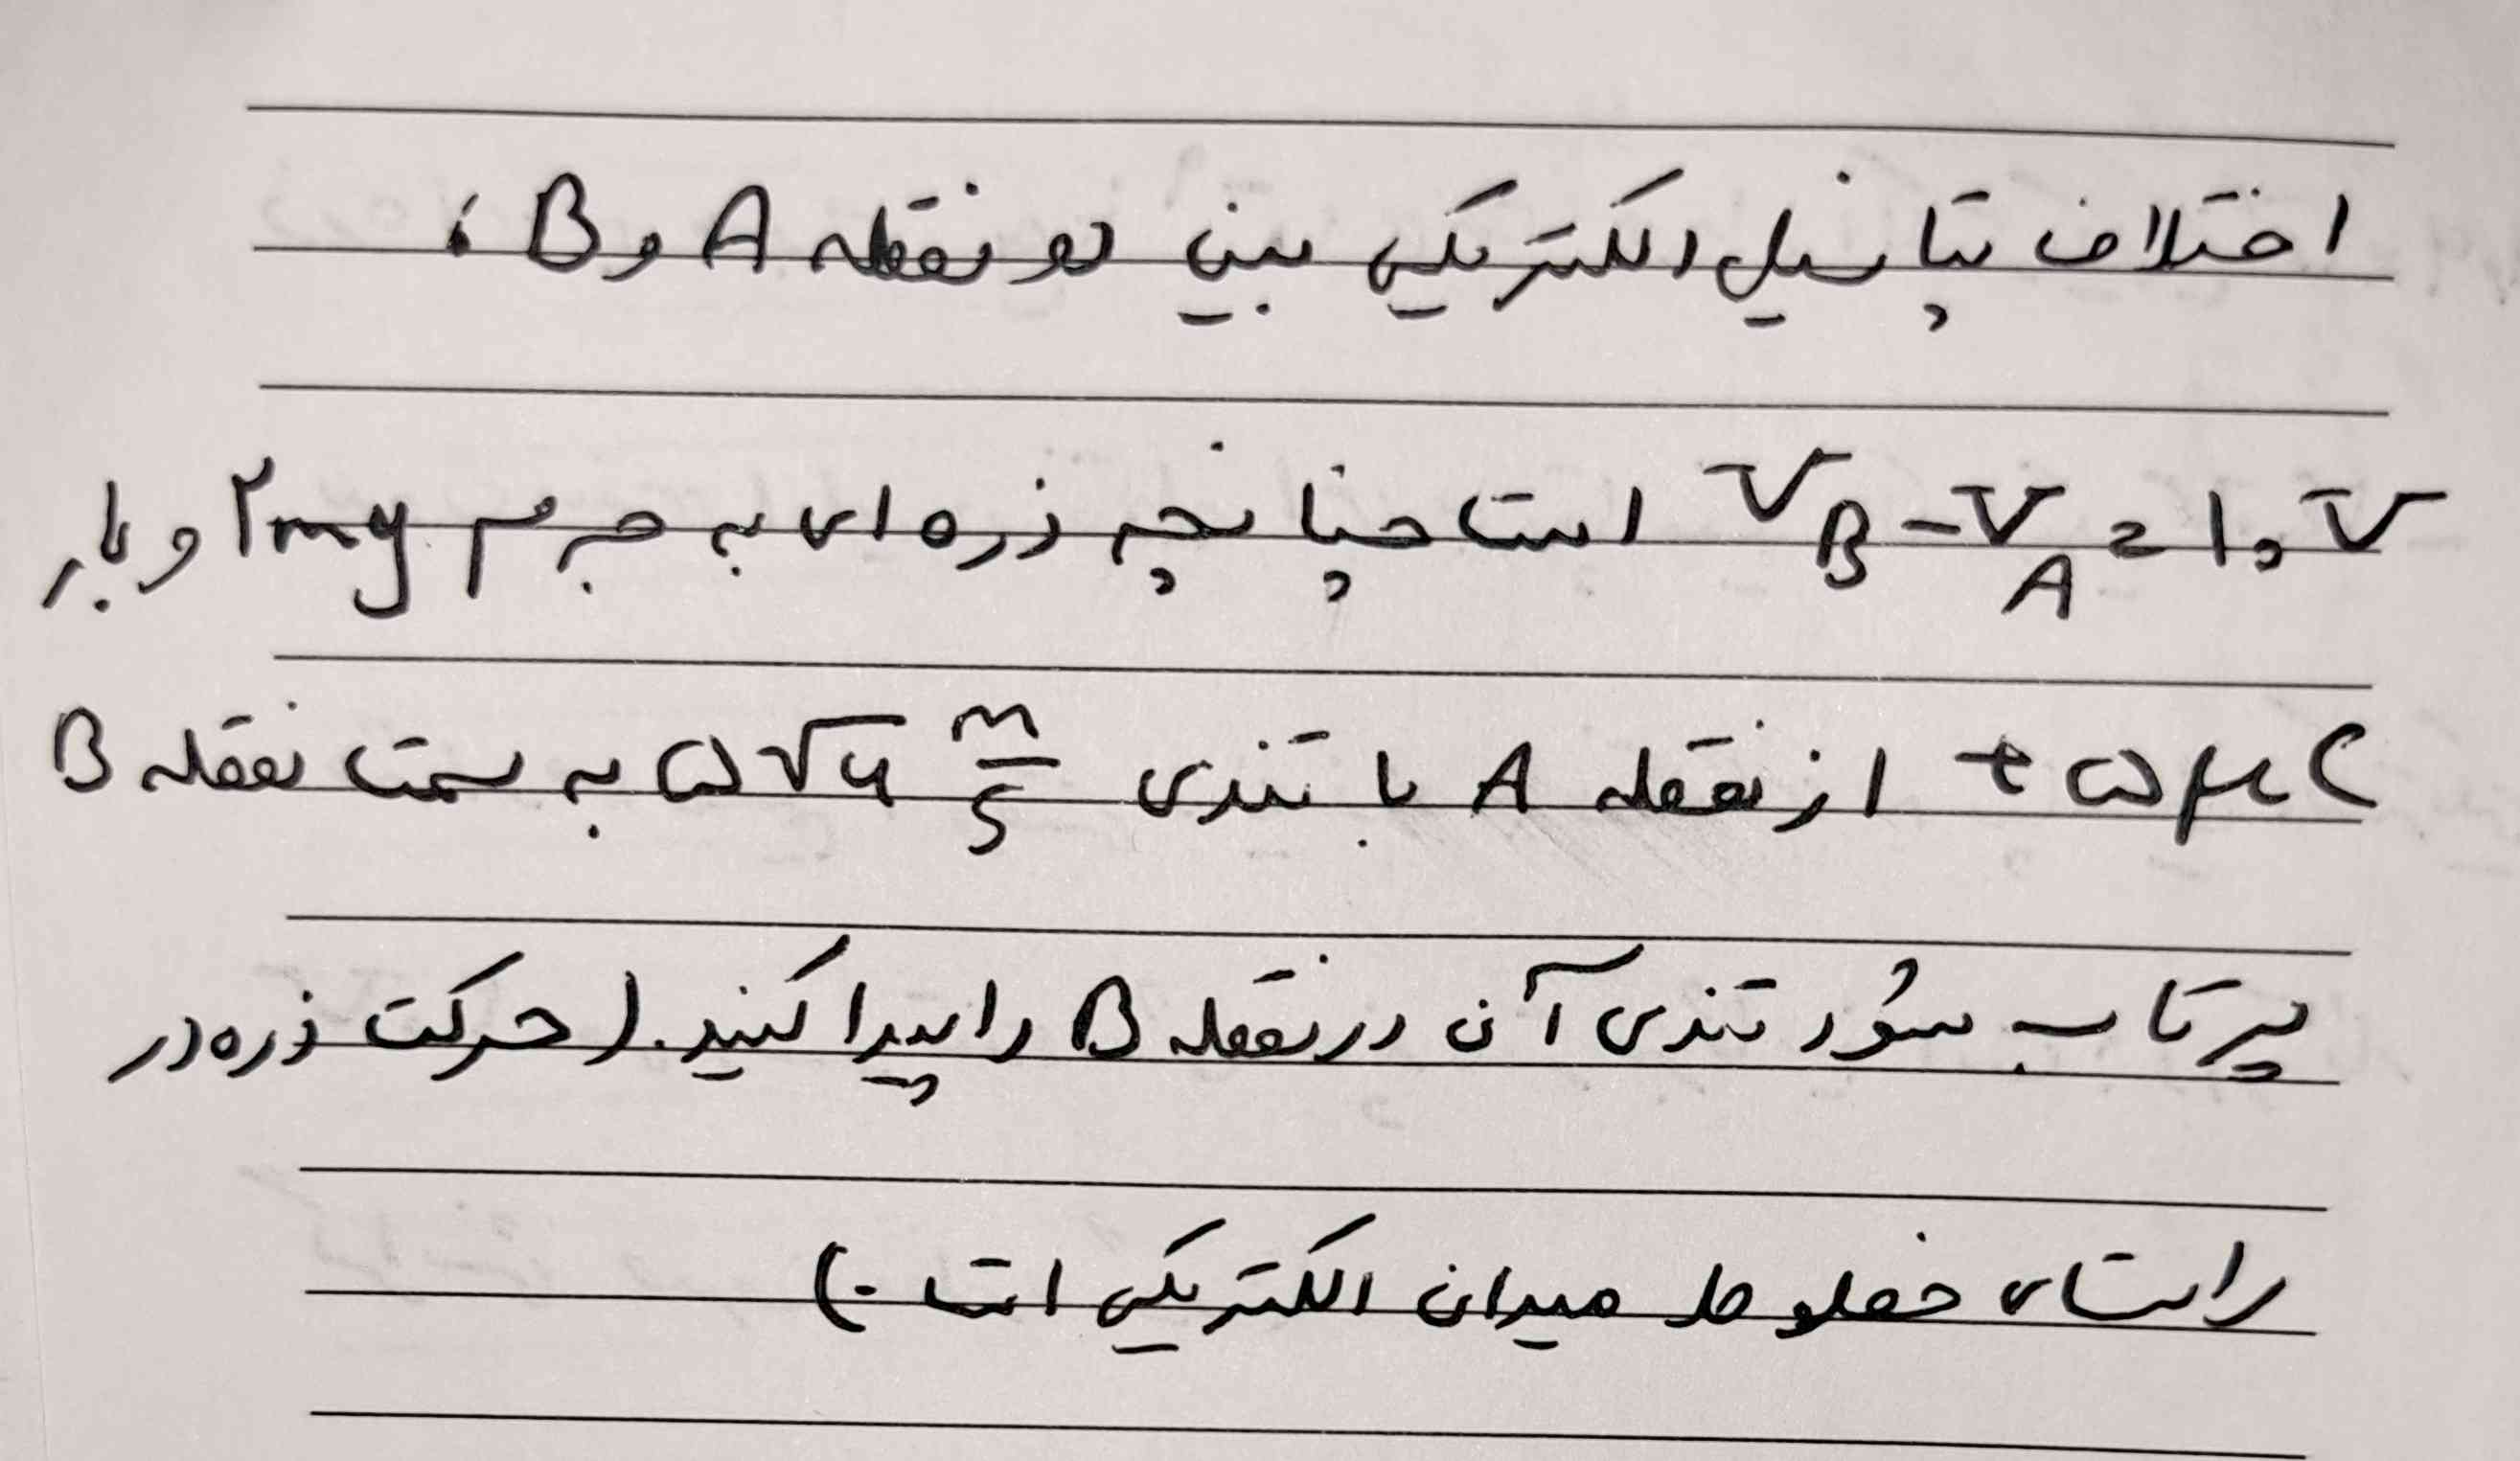 اختلاف پتانسیل الکتریکی بین دو نقطه A و B ،
V_B - V_A = ۱۰ V است چنانچه ذره ای به جرم ۲mg و بار
+۵μC از نقطه A با تندی ۵√۶ m/s به سمت نقطه B
پرتاب شود تندی آن در نقطه B را پیدا کنید. (حرکت ذره در
راستای خطوط میدان الکتریکی است.)